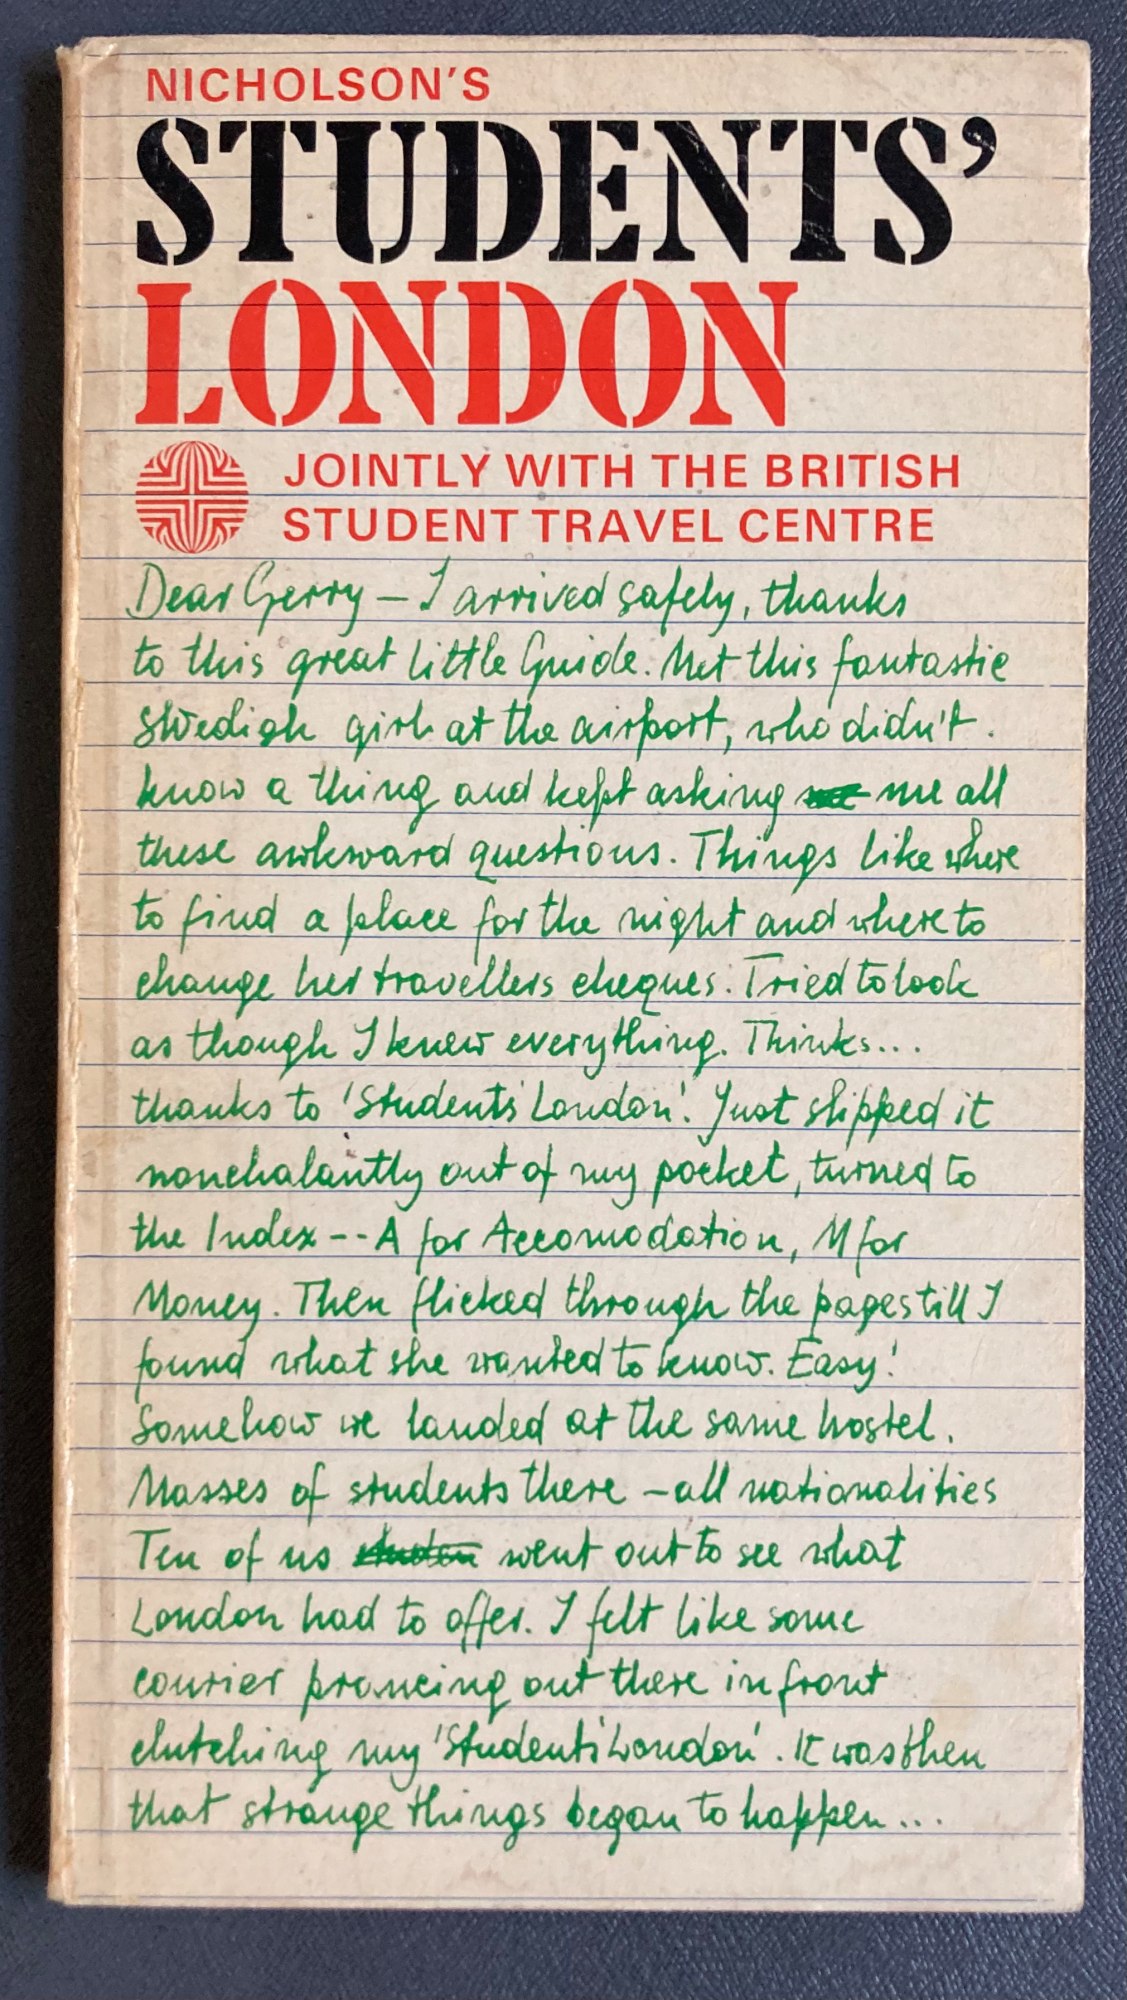 NICHOLSON'S
STUDENTS'
LONDON
JOINTLY WITH THE BRITISH
STUDENT TRAVEL CENTRE
Dear Gerry – I arrived safely, thanks
to this great little Guide. Met this fantastic
Swedish girl at the airport, who didn't.
know a thing and kept asking me all
these awkward questions. Things like where
to find a place for the night and where to
change her travellers cheques. Tried to look
as though I knew everything. Thinks...
thanks to 'Students' London'. Just slipped it
nonchalantly out of my pocket, turned to
the Index -- A for Accomodation, M for
Money. Then flicked through the pages till I
found what she wanted to know. Easy!
Somehow we landed at the same hostel.
Masses of students there – all nationalities
Ten of us went out to see what
London had to offer. I felt like some
courier prancing out there in front
clutching my 'Students' London'. It was then
that strange things began to happen...